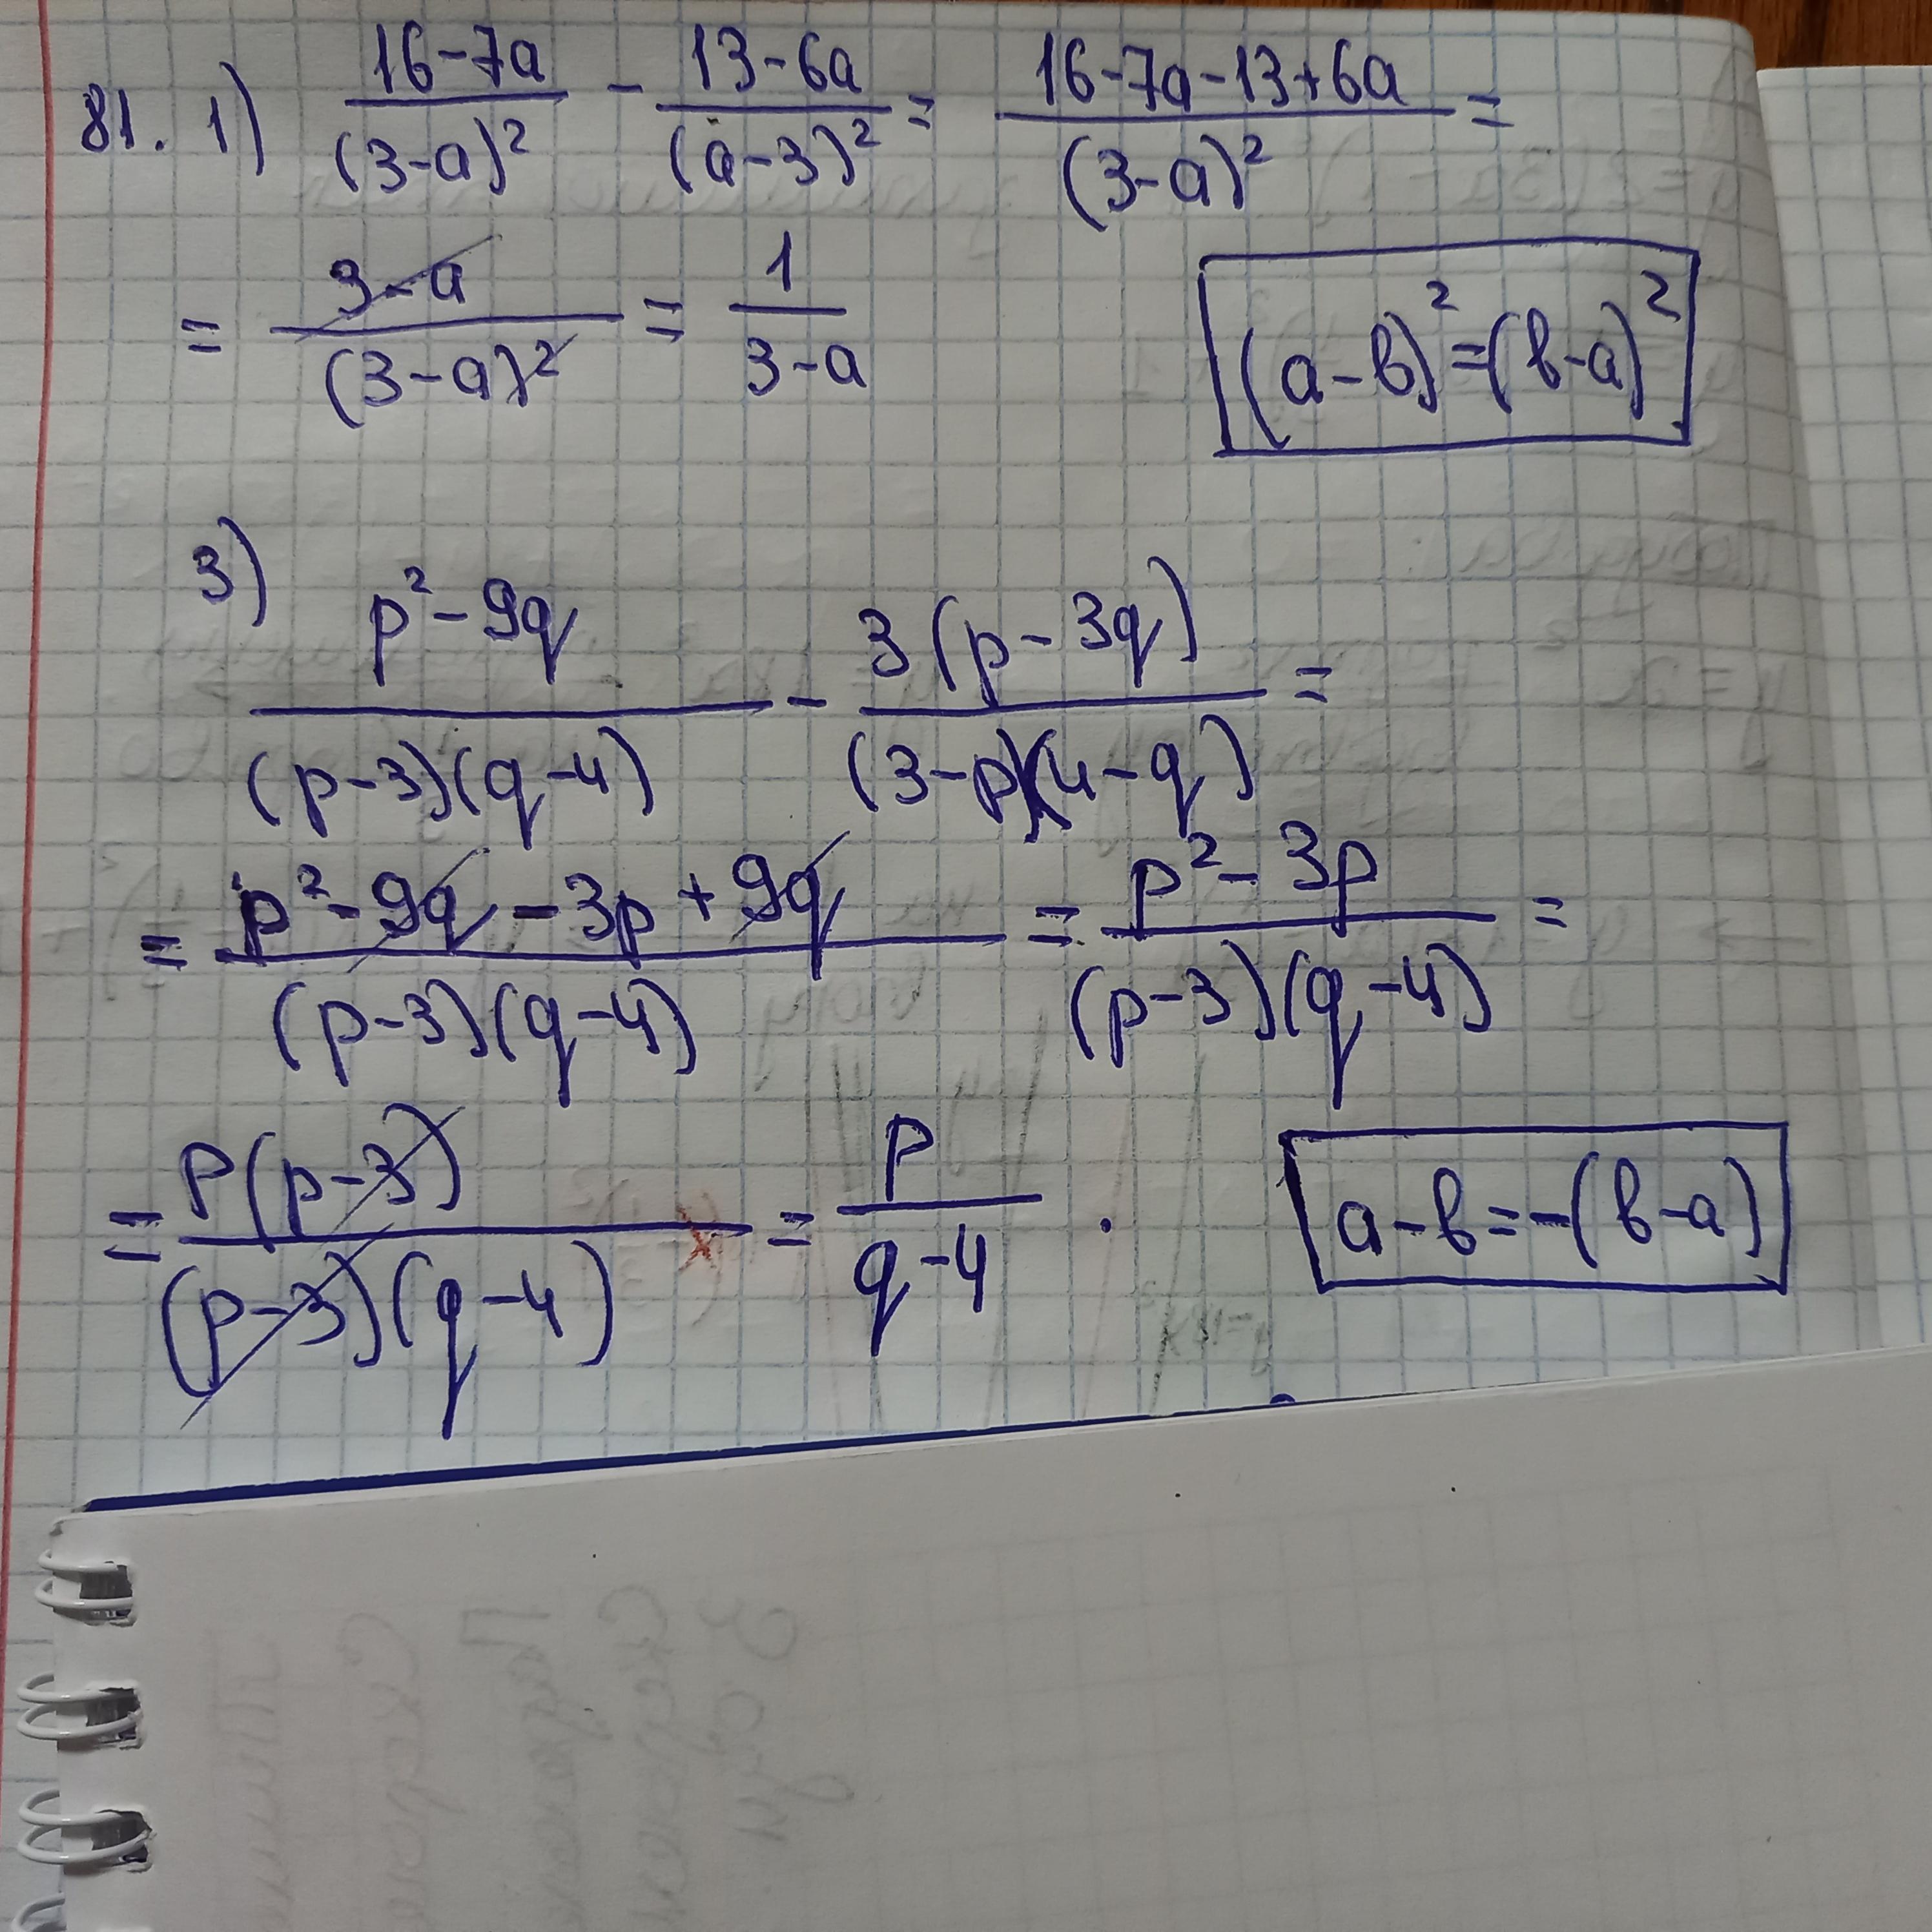 81. 1) (16-7a)/(3-a)² - (13-6a)/(a-3)² = (16-7a-13+6a)/(3-a)² =
= (3-a)/(3-a)² = 1/(3-a)
(a-b)²=(b-a)²
3) (p²-9q)/((p-3)(q-4)) - (3(p-3q))/((3-p)(4-q)) =
= (p²-9q-3p+9q)/((p-3)(q-4)) = (p²-3p)/((p-3)(q-4)) =
= (p(p-3))/((p-3)(q-4)) = p/(q-4) .
a-b=-(b-a)